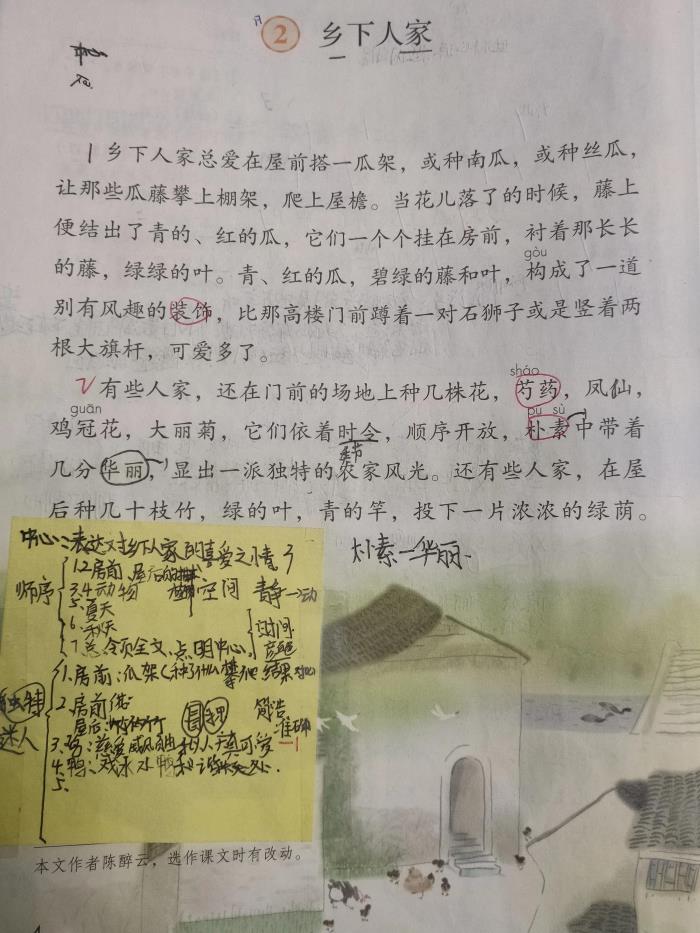 2 乡下人家
1 乡下人家总爱在屋前搭一瓜架，或种南瓜，或种丝瓜，
让那些瓜藤攀上棚架，爬上屋檐。当花儿落了的时候，藤上
便结出了青的、红的瓜，它们一个个挂在房前，衬着那长长
gòu
的藤，绿绿的叶。青、红的瓜，碧绿的藤和叶，构成了一道
别有风趣的装饰，比那高楼门前蹲着一对石狮子或是竖着两
根大旗杆，可爱多了。
sháo
有些人家，还在门前的场地上种几株花，芍药，凤仙，
guān pǔ sù
鸡冠花，大丽菊，它们依着时令，顺序开放，朴素中带着
季节
几分华丽，显出一派独特的农家风光。还有些人家，在屋
后种几十枝竹，绿的叶，青的竿，投下一片浓浓的绿荫。
朴素—华丽
中心：表达对乡下人家的喜爱之情
顺序
1.2 房前、屋后
3.4 动物 空间 静→动
5. 夏天
6. 秋天 时间
7. 总 领全文、点明中心
独特
迷人
1. 房前：瓜架（种了什么 攀爬 结果
2. 房前
屋后： 准确
3. 鸡：慈爱 威风 可爱
4. 鸭：戏水
5.
本文作者陈醉云，选作课文时有改动。